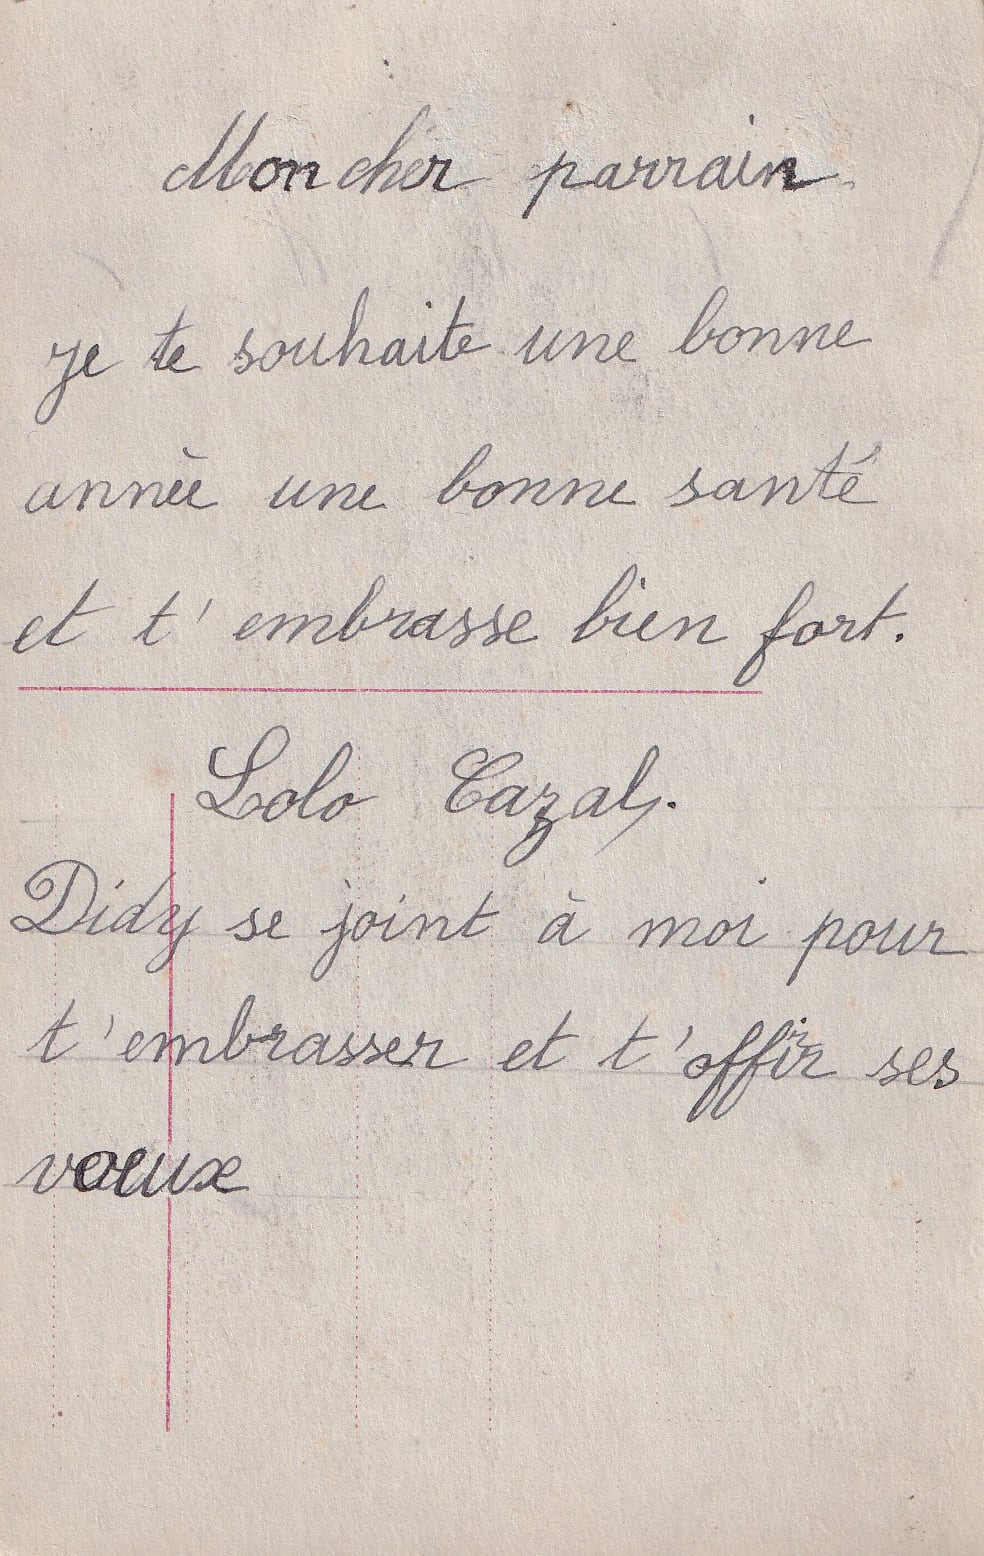 Mon cher parrain
je te souhaite une bonne
année une bonne santé
et t'embrasse bien fort.
Lolo Cazals.
Didy se joint à moi pour
t'embrasser et t'offrir ses
voeux